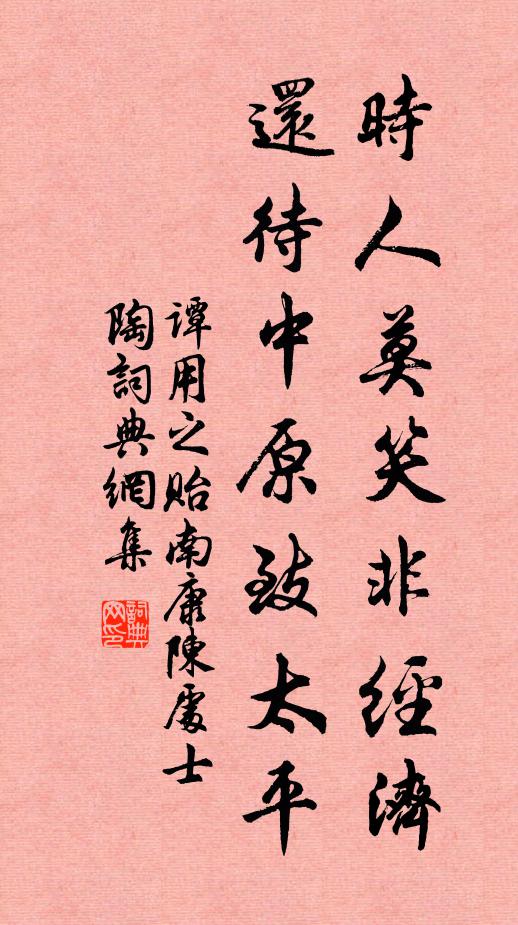 時人莫笑非經濟
還待中原致太平
谭用之貽南康陳處士
陶詞典網集
詞典網印